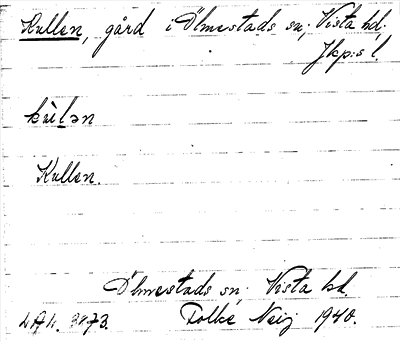 Kullen, gård i Ölmestads sn, Vista hd.
Jkp:s l.
kùlən
Kullen.
Ölmestads sn, Vista hd.
Folke Neij 1940.